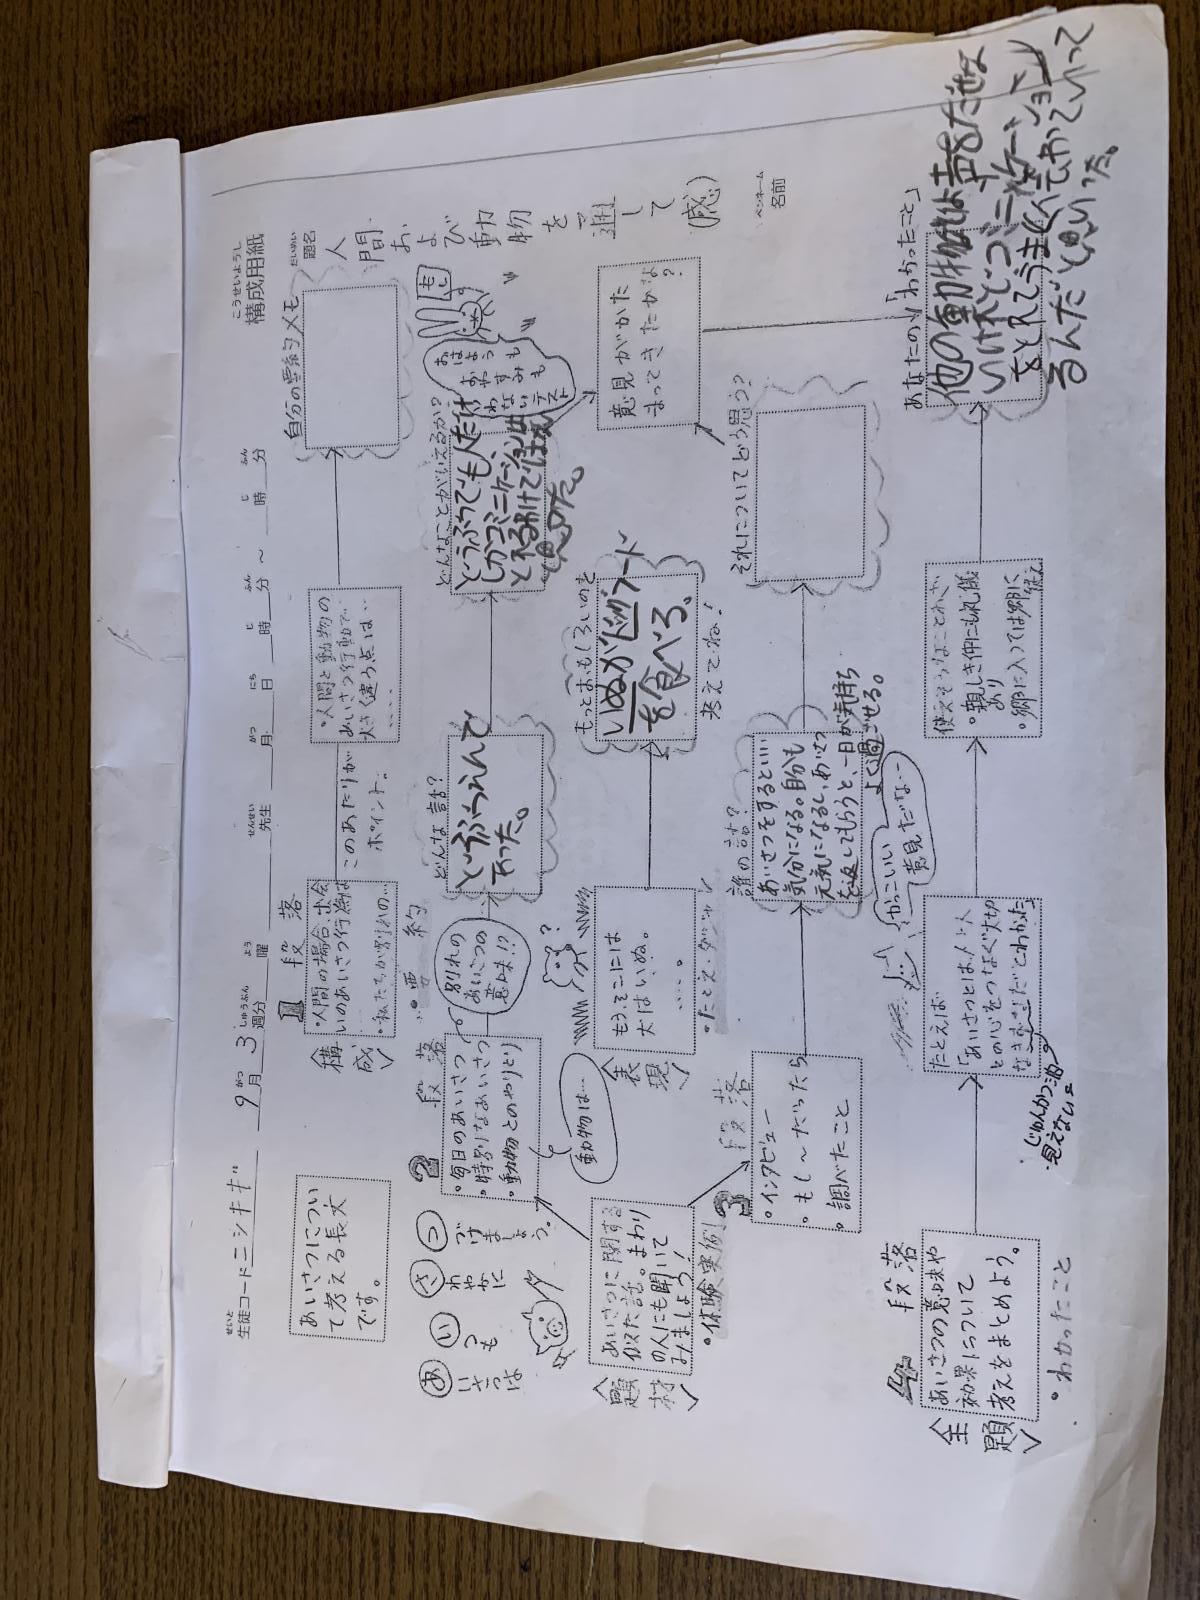 こうせいようし
構成用紙
だいめい
題名
人間および動物を通して(感)
ペンネーム
名前
せいと
生徒コード ニシキギ 9月 3週分 曜 先生 月 日 時 分 ～ 時 分
がつ しゅうぶん よう せんせい がつ にち じ ふん じ ふん
あいさつについ
て考える長文
です。
1 段落
〈構成〉
・人間の場合、出会
いのあいさつ行為は
・私たちが別れの…
このあたりが
ポイント。
・人間と動物の
あいさつ行動で
大きく違う点は…
……
自分の要約メモ
あいさつは
いつも
さわやかに
つづけましょう。
2 段落
・要約
・毎日のあいさつ
・特別なあいさつ
・動物とのやりとり
別れの
あいさつの
意味!?
どんな話?
どうぶつえんで
やった。
どんなことがいえるか?
どうぶつでも、人だけ
しかコミニケーションは
とれるわけではない
と思った。
おはようも
おやすみも
いわない
テスト
動物は…
〈題材〉
あいさつに関する
似た話。まわり
の人にも聞いて
みましょう!
・体験実例
〈表現〉
もう、そこには
犬はいぬ。
……。
・たとえ・ダジャレ
もっとおもしろいのを
いぬがドッグフード
を食べる。
考えてね!
意見がかた
まってきたかな
?
3 段落
・インタビュー
・もし～だったら
・調べたこと
誰の話?
あいさつをするといい
気分になる。自分も
元気になるし、あいさつ
を返してもらうと、一日が気持ち
よく過ごせる。
それについてどう思う?
かっこいい
意見だな…
4 段落
〈全題〉
あいさつの意味や
効果について
考えをまとめよう。
・わかったこと
たとえば
「あいさつとは人と人
との心をつなぐ大切
なきずなだとわかった」
じゅんかつ油
見えないよ
使えそうなことわざ
・親しき仲にも礼儀
あり
・郷に入っては郷に
従え
あなたの「わかったこと」
他の動物は声をだせな
いけれどコミニケーション
をとれてうまく
るんだと思いった。